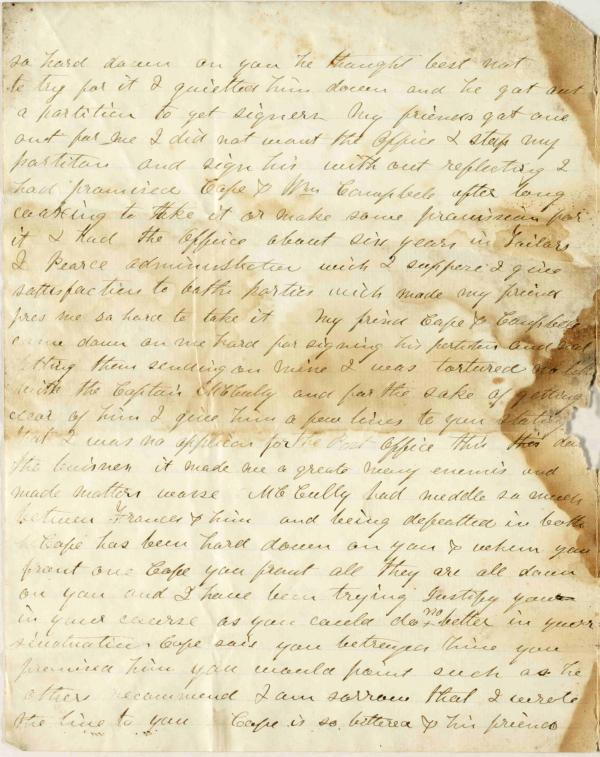 so hard down on you he thought best not
to try for it I quietted him down and he gat out
a partition to get signers My friends gat one
out for me I did not want the Office & stop my
partition and sign his with out reflecting I
had promised Cape & Wm Campbele after long
coaxing to take it or make some promission for
it I had the Office about six years in Tailors
& Pearce administration wich I suppose I give
sattisfaction to bothe parties wich made my friend
pres me so hard to take it My frind Cape & Campbele
came down on me hard for signing his partition and not
letting them sending on mine I was tortured
with the Captain McCully and for the sake of getting
clear of him I give him a few lines to you stating
that I was no applican for the Post Office this this don
the buisnes it made me a greate many enemis and
made matters worse McCully had meddle so much
between Frances & him and being defeatted in both
Cape has been hard down on you & when you
front one Cape you front all they are all down
on you and I have been trying Justify your
in your course as you could do no better in your
sinatuation Cape sais you betreyed hime you
promised him you would point such as he
others recommend I am sorrow that I wrote
the line to you Cape is so bittered & his friends